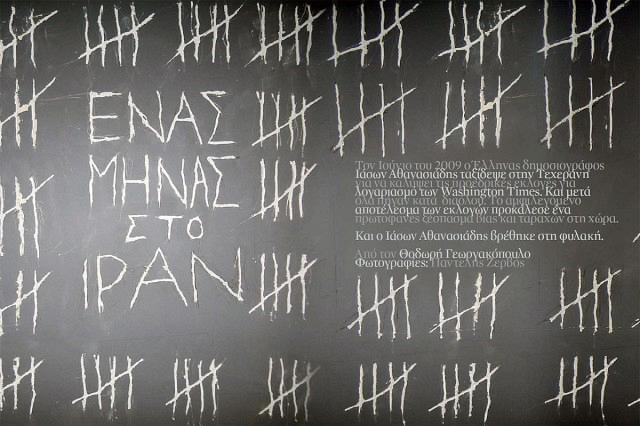 ΕΝΑΣ
ΜΗΝΑΣ
ΣΤΟ
ΙΡΑΝ
Τον Ιούνιο του 2009 ο Έλληνας δημοσιογράφος
Ιάσων Αθανασιάδης ταξίδεψε στην Τεχεράνη
για να καλύψει τις προεδρικές εκλογές για
λογαριασμό των Washington Times. Και μετά
όλα πήγαν κατά διαόλου. Το αμφιλεγόμενο
αποτέλεσμα των εκλογών προκάλεσε ένα
πρωτοφανές ξέσπασμα βίας και ταραχών στη χώρα.
Και ο Ιάσων Αθανασιάδης βρέθηκε στη φυλακή.
Από τον Θοδωρή Γεωργακόπουλο
Φωτογραφίες: Παντελής Ζερβός